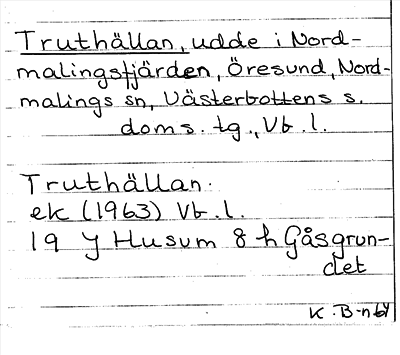 Truthällan, udde i Nord-
malingsfjärden, Öresund, Nord-
malings sn, Västerbottens s.
doms. tg., Vb. l.
Truthällan.
ek (1963) Vb. l.
19 J Husum 8 h Gåsgrun-
det
K. B-n 64